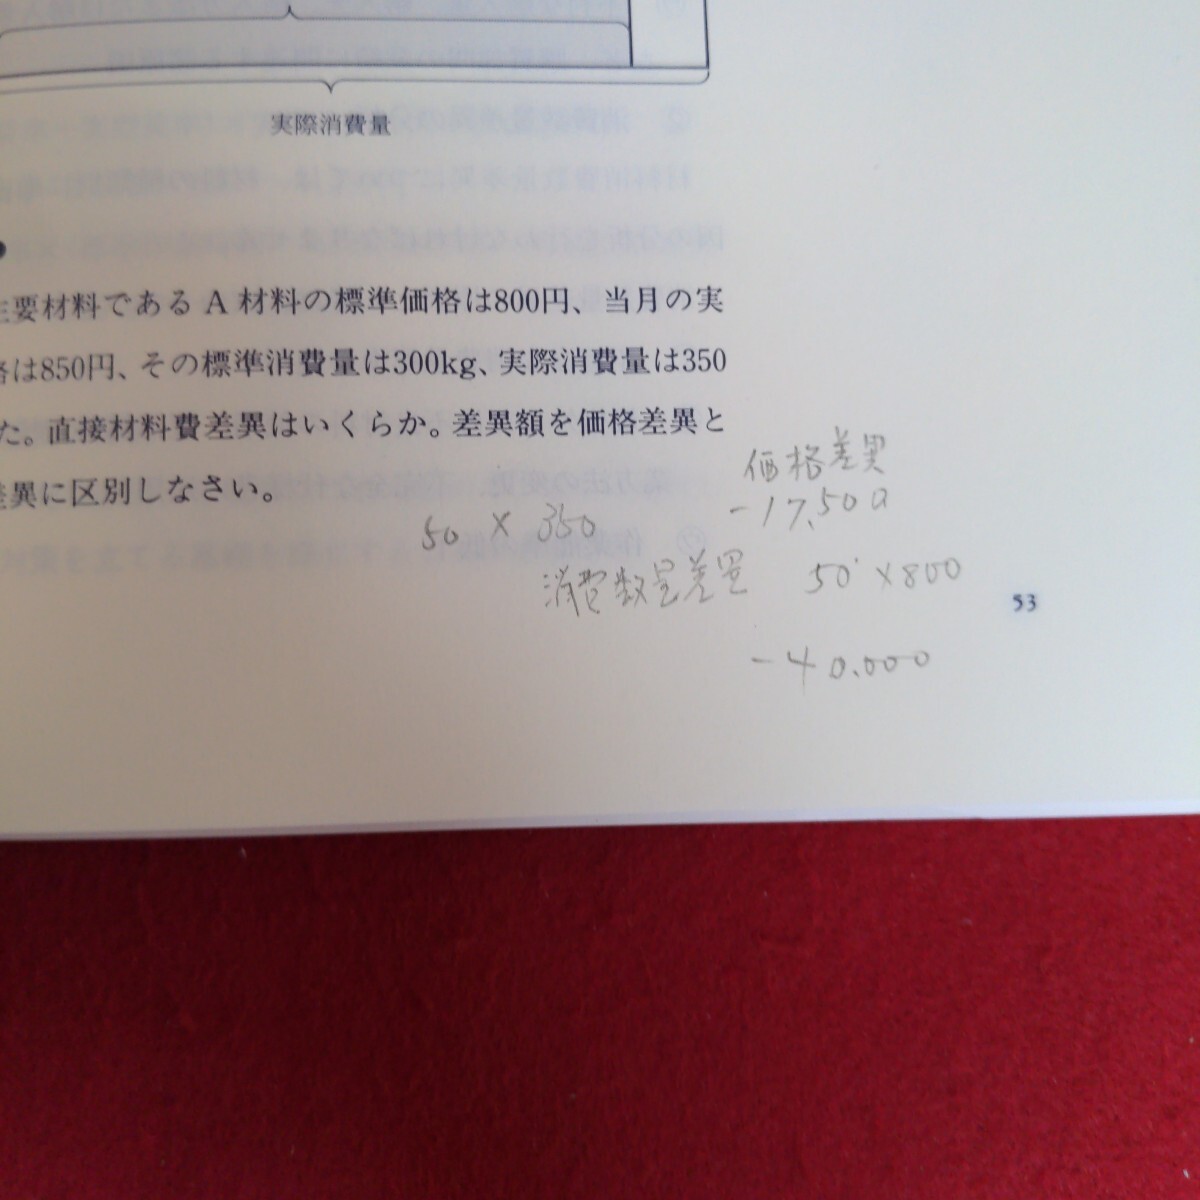 実際消費量
主要材料である A 材料の標準価格は800円、当月の実
格は850円、その標準消費量は300kg、実際消費量は350
た。直接材料費差異はいくらか。差異額を価格差異と
差異に区別しなさい。
価格差異
-17,500
50 × 350
消費数量差異 50 × 800
53
-40.000